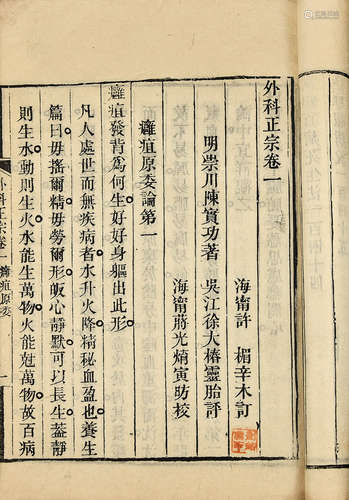 外科正宗卷一
海甯許 楣辛木訂
明崇川陳實功著 吳江徐大椿靈胎評
海甯蔣光焴寅昉校
癰疽原委論第一
癰疽發背為何生好好身軀出此形
凡人處世而無疾病者水升火降精秘血盈也養生
篇曰毋搖爾精毋勞爾形皈心靜默可以長生蓋靜
則生水動則生火水能生萬物火能尅萬物故百病
外科正宗卷一 癰疽原委 一